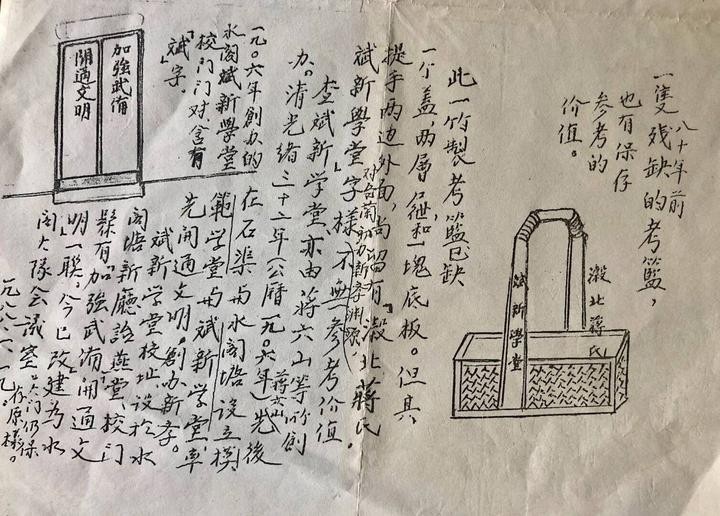 一隻八十年前残缺的考籃,
也有保存
参考的
价值。
瀫北蒋氏
斌新學堂
此一竹製考籃已缺
一个盖,两層屉和一塊底板。但其
提手两边外面,尚留有「瀫北蒋氏
斌新學堂」字樣,不無参考价值。
查斌新学堂亦由蒋六山等所創
办。清光绪三十二年(公曆一九〇六年)蒋六山先後
在石渠与水阁塘設立模
範学堂与斌新学堂,率
先開通文明。創办新孝。
斌新学堂校址設於水
阁塘新廳詒燕堂,校门
縣有「加強武備,開通文
明」一联,今已改建為水
阁大隊会議室。大门仍保存原樣。
一九八八.一.九.
一九〇六年創办的
水阁斌新學堂
校门门对,含有
「斌」字
加強武備
開通文明